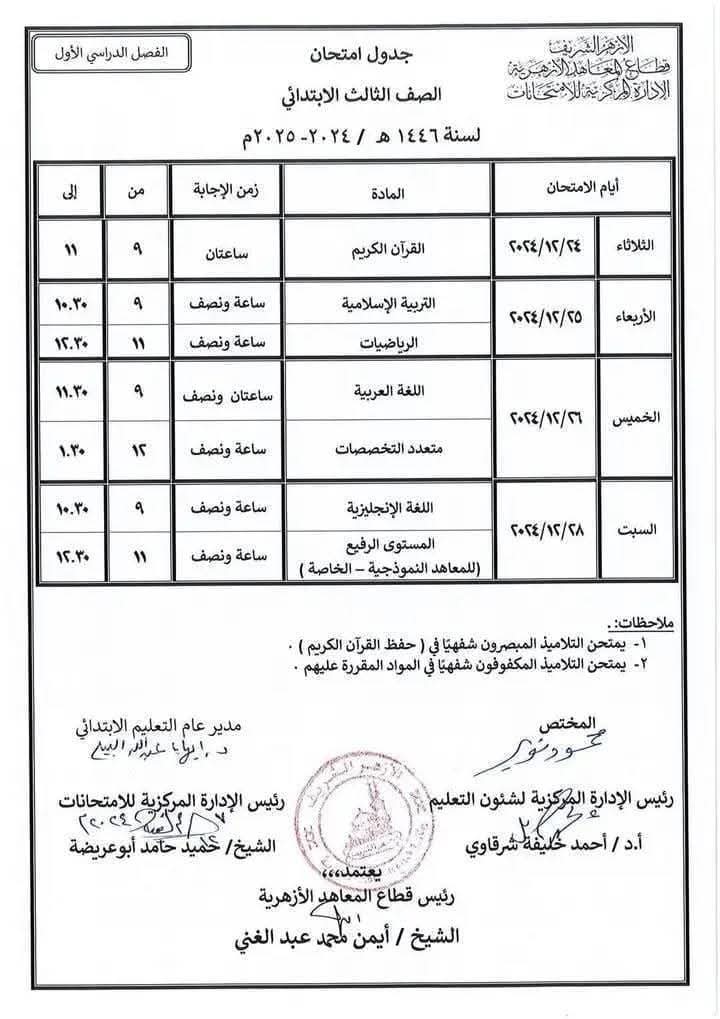 الأزهر الشريف
قطاع المعاهد الأزهرية
الإدارة المركزية للامتحانات
جدول امتحان
الفصل الدراسي الأول
الصف الثالث الابتدائي
لسنة ١٤٤٦ هـ / ٢٠٢٤- ٢٠٢٥م
أيام الامتحان المادة زمن الإجابة من إلى
الثلاثاء ٢٠٢٤/١٢/٢٤ القرآن الكريم ساعتان ٩ ١١
الأربعاء ٢٠٢٤/١٢/٢٥ التربية الإسلامية ساعة ونصف ٩ ١٠.٣٠
الرياضيات ساعة ونصف ١١ ١٢.٣٠
الخميس ٢٠٢٤/١٢/٢٦ اللغة العربية ساعتان ونصف ٩ ١١.٣٠
متعدد التخصصات ساعة ونصف ١٢ ١.٣٠
السبت ٢٠٢٤/١٢/٢٨ اللغة الإنجليزية ساعة ونصف ٩ ١٠.٣٠
المستوى الرفيع ساعة ونصف ١١ ١٢.٣٠
(للمعاهد النموذجية – الخاصة )
ملاحظات: .
١- يمتحن التلاميذ المبصرون شفهيًا في ( حفظ القرآن الكريم ) .
٢- يمتحن التلاميذ المكفوفون شفهيًا في المواد المقررة عليهم .
المختص
مدير عام التعليم الابتدائي
رئيس الإدارة المركزية لشئون التعليم
رئيس الإدارة المركزية للامتحانات
أ.د / أحمد خليفة شرقاوي
الشيخ/ حميد حامد أبوعريضة
الأزهر الشريف
يعتمد،،،
رئيس قطاع المعاهد الأزهرية
الشيخ / أيمن محمد عبد الغني